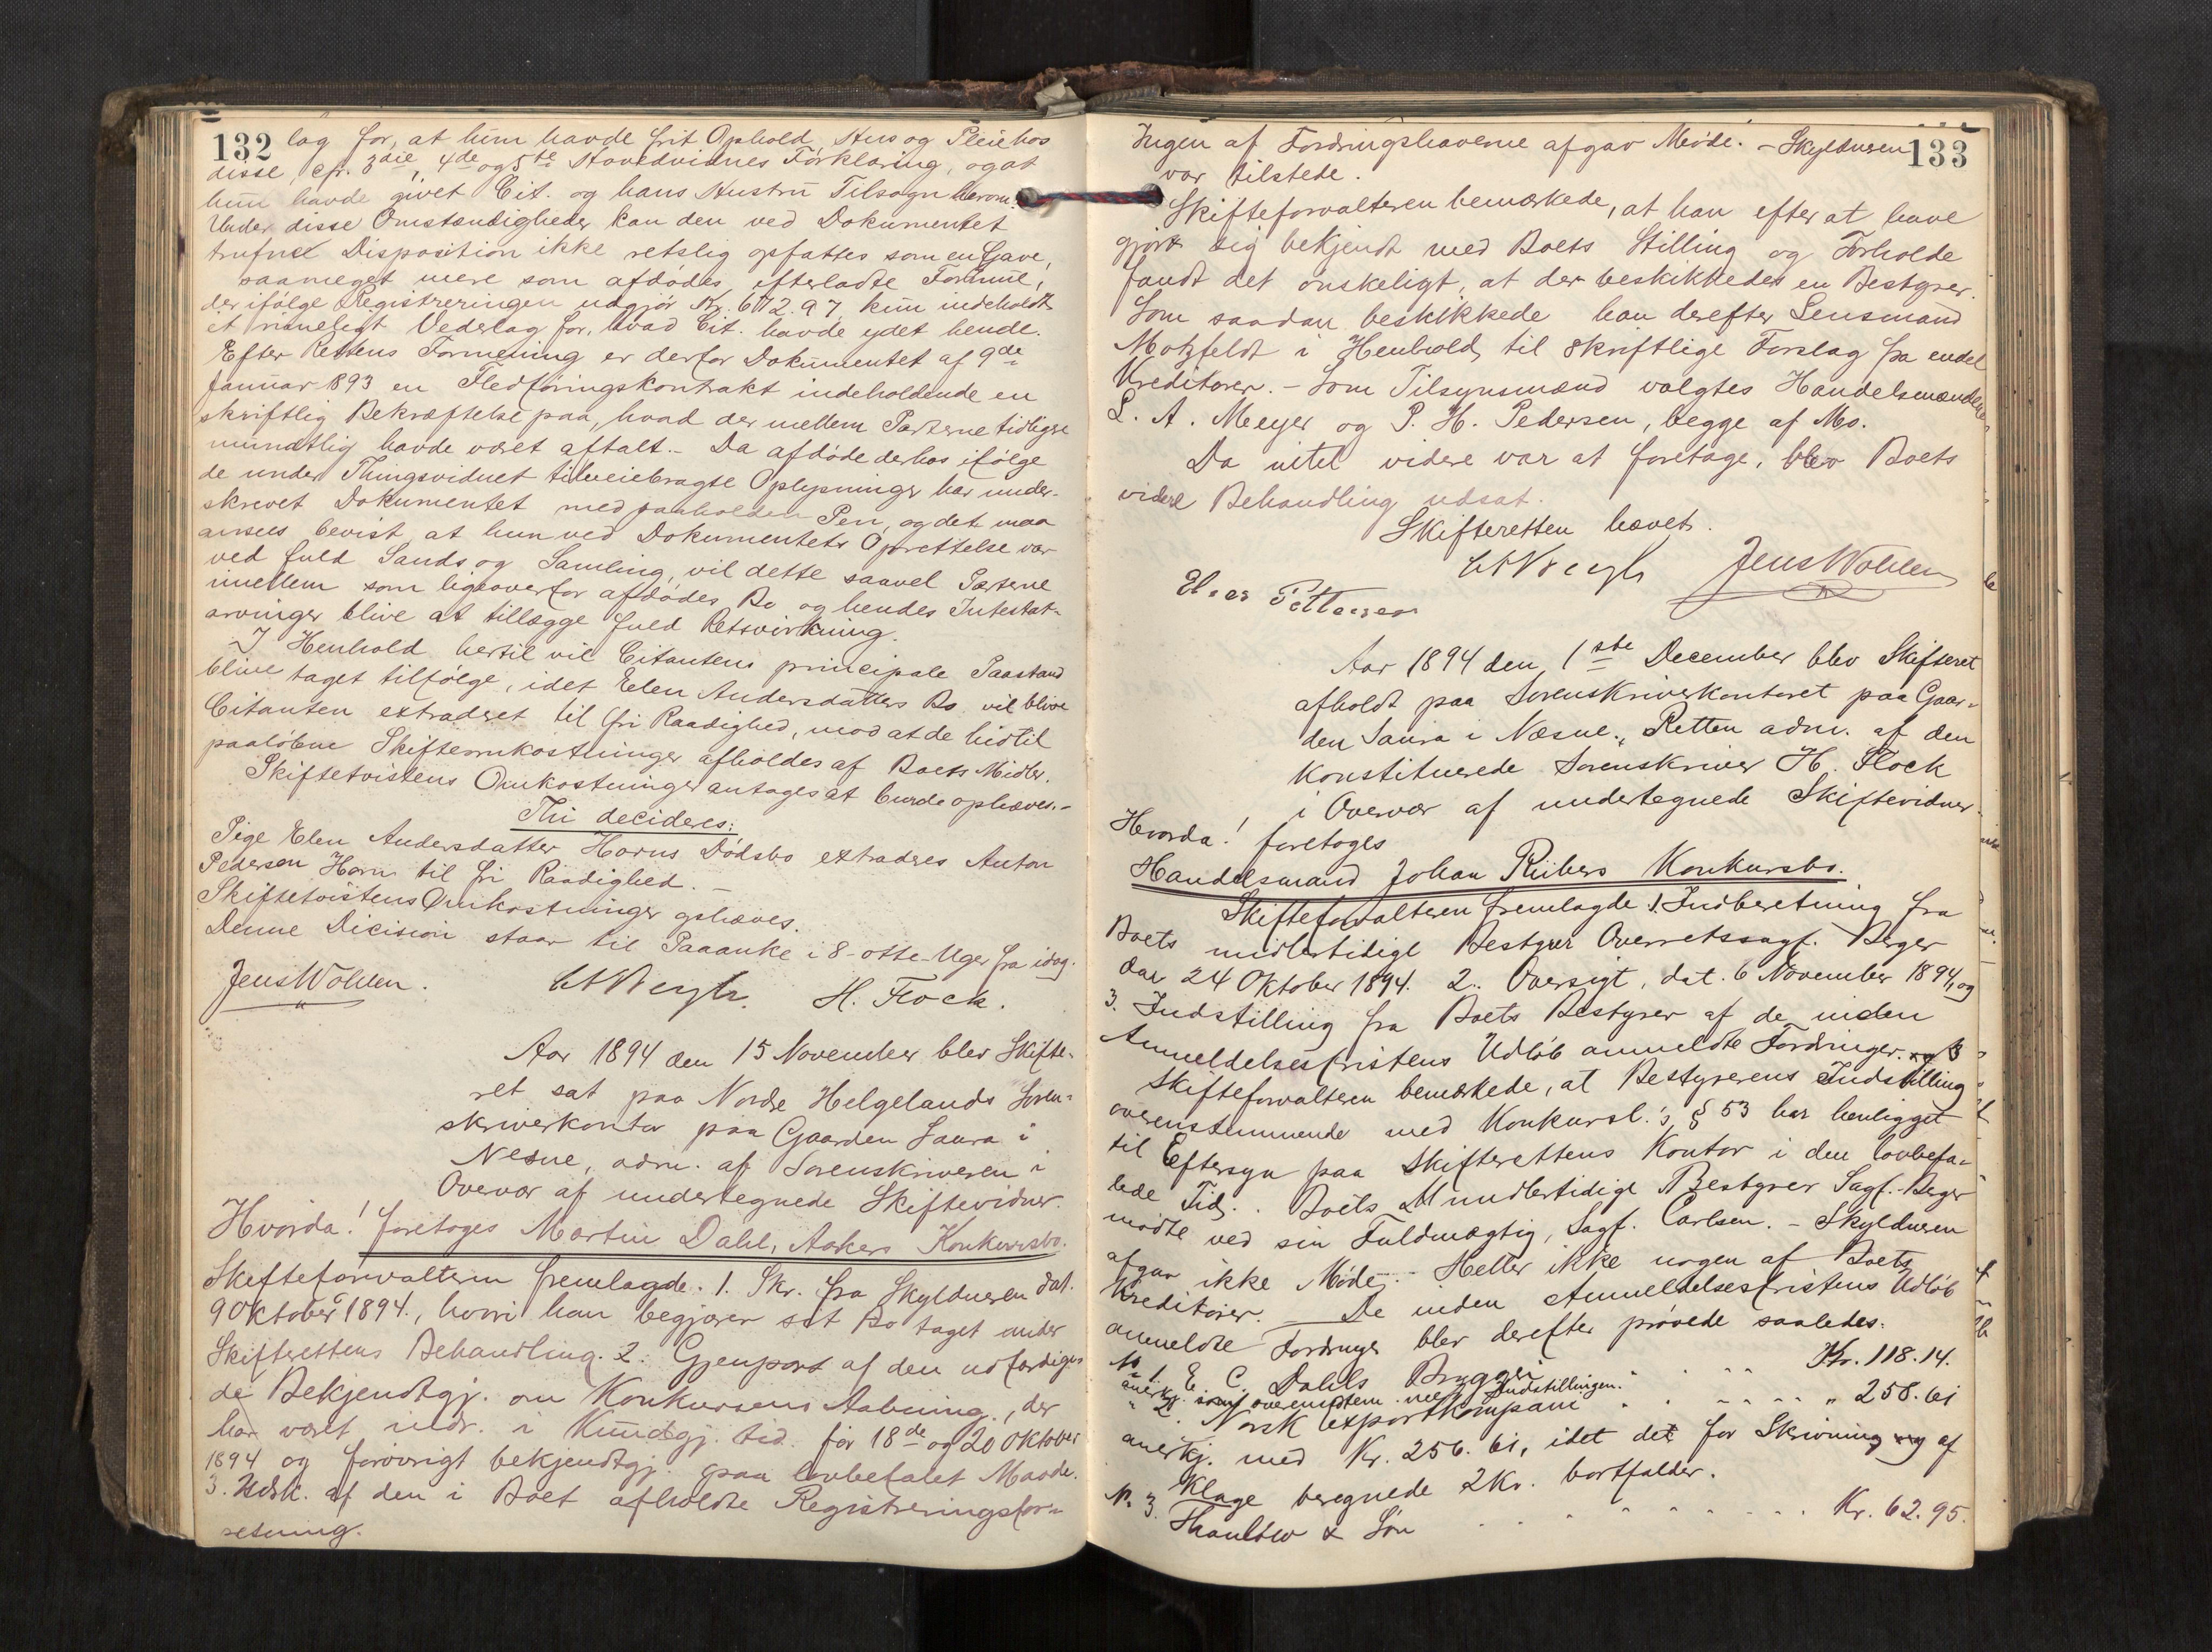 132
lag for, at hun havde frit Ophold, Hus og Pleie hos
disse, cfr. 3die, 4de og 5te Hovedvidnes Forklaring, og at
hun havde givet Cit. og hans Hustru Tilsagn herom.
Under disse Omstændigheder kan den ved Dokumentet
trufne Disposition ikke retslig opfattes som en Gave,
saameget mere som afdødes efterladte Formue,
der ifølge Registreringen udgjør Kr. 672.97, kun indeholdt
et rimeligt Vederlag for, hvad Cit. havde ydet hende.
Efter Rettens Formening er derfor Dokumentet af 9de
Januar 1893 en Fledføringskontrakt indeholdende en
skriftlig Bekræftelse paa, hvad der mellem Parterne tidligere
mundtlig havde været aftalt. – Da afdøde derhos ifølge
de under Thingsvidnet tilveiebragte Oplysninger har under-
skrevet Dokumentet med paaholden Pen, og det maa
ansees bevist at hun ved Dokumentets Oprettelse var
ved fuld Sands og Samling, vil dette saavel Parterne
imellem som ligeoverfor afdødes Bo og hendes Intestat-
arvinger blive at tillægge fuld Retsvirkning.
I Henhold hertil vil Citantens principale Paastand
blive taget tilfølge, idet Elen Andersdatters Bo vil blive
Citanten extraderet til fri Raadighed, mod at de hidtil
paaløbne Skifteomkostninger afholdes af Boets Midler.
Skiftetvistens Omkostninger antages at burde ophæves. –
Thi decideres:
Pige Elen Andersdatter Horns Dødsbo extraderes Anton
Pedersen Horn til fri Raadighed. –
Skiftetvistens Omkostninger ophæves.
Denne Dicision staar til Paaanke i 8 – otte – Uger fra idag.
Jens Wohlen. H. Flock.
Aar 1894 den 15 November blev Skifte-
ret sat paa Nordre Helgelands Soren-
skriverkontor paa Gaarden Saura i
Nesne, adm. af Sorenskriveren i
Overvær af undertegnede Skiftevidner.
Hvorda! foretoges Martin Dahl, Aakers Konkursbo.
Skifteforvalteren fremlagde. 1. Skr. fra Skyldneren dat.
9 Oktober 1894, hvori han begjærer sit Bo taget under
Skifterettens Behandling. 2. Gjenpart af den udfærdige-
de Bekjendtgj. om Konkursens Aabning, der
har været indr. i Kundgj. tid. for 18de og 20 Oktober
1894 og forøvrigt bekjendtgj. paa lovbefalet Maade.
3. Udsk. af den i Boet afholdte Registreringsfor-
retning.
133
Ingen af Fordringshaverne afgav Møde. – Skyldneren
var tilstede.
Skifteforvalteren bemærkede, at han efter at have
gjort sig bekjendt med Boets Stilling og Forholde
fandt det ønskeligt, at der beskikkedes en Bestyrer.
Som saadan beskikkede han derefter Lensmand
Motzfeldt i Henhold til skriftlige Forslag fra endel
Kreditorer. – Som Tilsynsmænd valgtes Handelsmændene
L. A. Meyer og P. H. Pedersen, begge af Mo.
Da intet videre var at foretage, blev Boets
videre Behandling udsat.
Skifteretten hævet.
Jens Wohlen
Elias Pettersen
Aar 1894 den 1ste December blev Skifteret
afholdt paa Sorenskriverkontoret paa Gaar-
den Saura i Næsne. Retten adm. af den
Konstituerede Sorenskriver H. Flock
i Overvær af undertegnede Skiftevidner.
Hvorda! foretoges
Handelsmand Johan Riibers Konkursbo.
Skifteforvalteren fremlagde 1. Indberetning fra
Boets midlertidige Bestyrer Overretssagf. Berger
dat 24 Oktober 1894. 2. Oversigt, dat. 6 November 1894, og
3. Indstilling fra Boets Bestyrer af de inden
Anmeldelsesfristens Udløb anmeldte Fordringer.
Skifteforvalteren bemærkede, at Bestyrerens Indstilling
overenstemmende med Konkursl.'s § 53 har henligget
til Eftersyn paa Skifterettens Kontor i den lovbefa-
lede Tid. Boets Midlertidige Bestyrer Sagf. Berger
mødte ved sin Fuldmægtig, Sagf. Carlsen. – Skyldneren
afgav ikke Møde. – Heller ikke nogen af Boets
Kreditorer. De inden Anmeldelsesfristens Udløb
anmeldte Fordringer blev derefter prøvede saaledes:
No 1. E. C. Dahls Bryggeri Kr. 118.14.
anerkj. som overenstem. med Indstillingen.
" 2. Norsk Exportkompani " 258.61
anerkj. med Kr. 256.61, idet det for Skrivning af
Klage beregnede 2 Kr. bortfalder.
No 3. Thaulow & Søn Kr. 62.95.